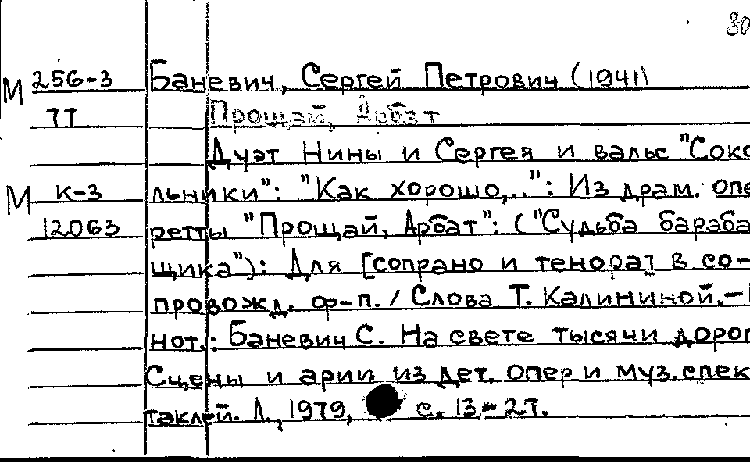 30
М 256-3 Баневич, Сергей Петрович (1941)
77 Прощай, Арбат
Дуэт Нины и Сергея и вальс "Соко-
М К-3 льники": "Как хорошо,..": Из драм. опе
12063 ретты "Прощай, Арбат": ("Судьба бараба
щика"): Для [сопрано и тенора] в со-
провожд. ф-п. / Слова Т. Калининой.–
нот.: Баневич С. На свете тысячи дорог
Сцены и арии из дет. опер и муз. спек
таклей. Л., 1979, с. 13-27.